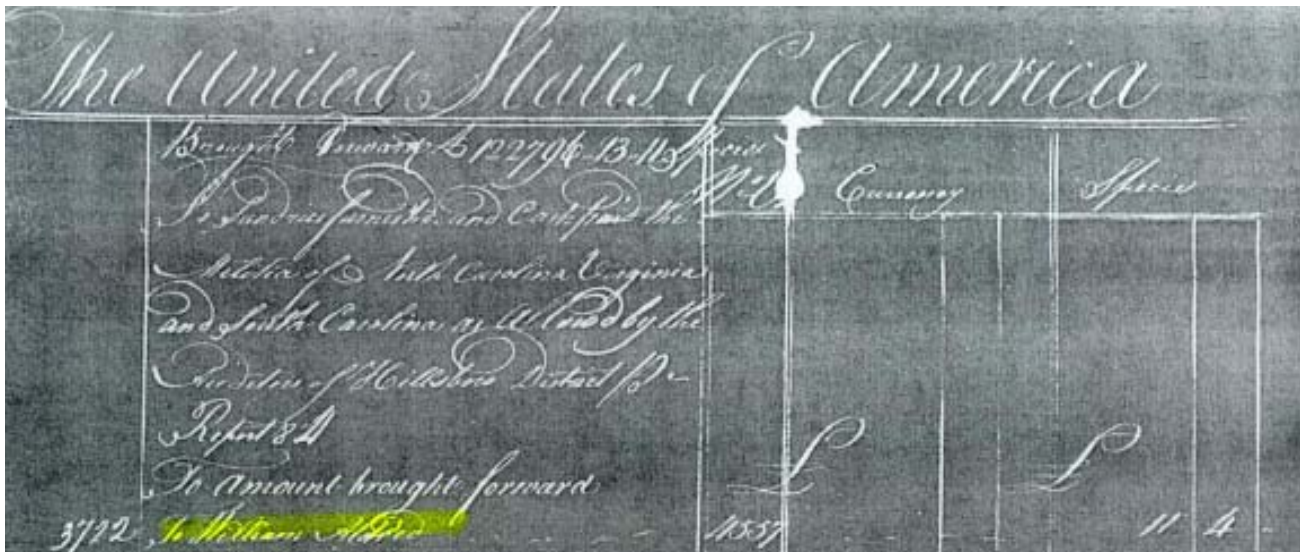 The United States of America
Brought forward £ 122796-13-11 Specie
No. Currency Specie
To Sundries furnished and Cash paid the
Militia of North Carolina Virginia
and South Carolina as Allowed by the
Auditors of Hillsboro District Pr
Report 84
To Amount brought forward £ £
3722 To William 4557 11 4 -